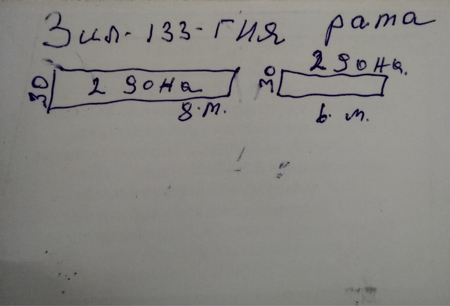 Зил-133-ГИЯ рата
2 дона.
30 2 дона 30
8.м. 6.м.